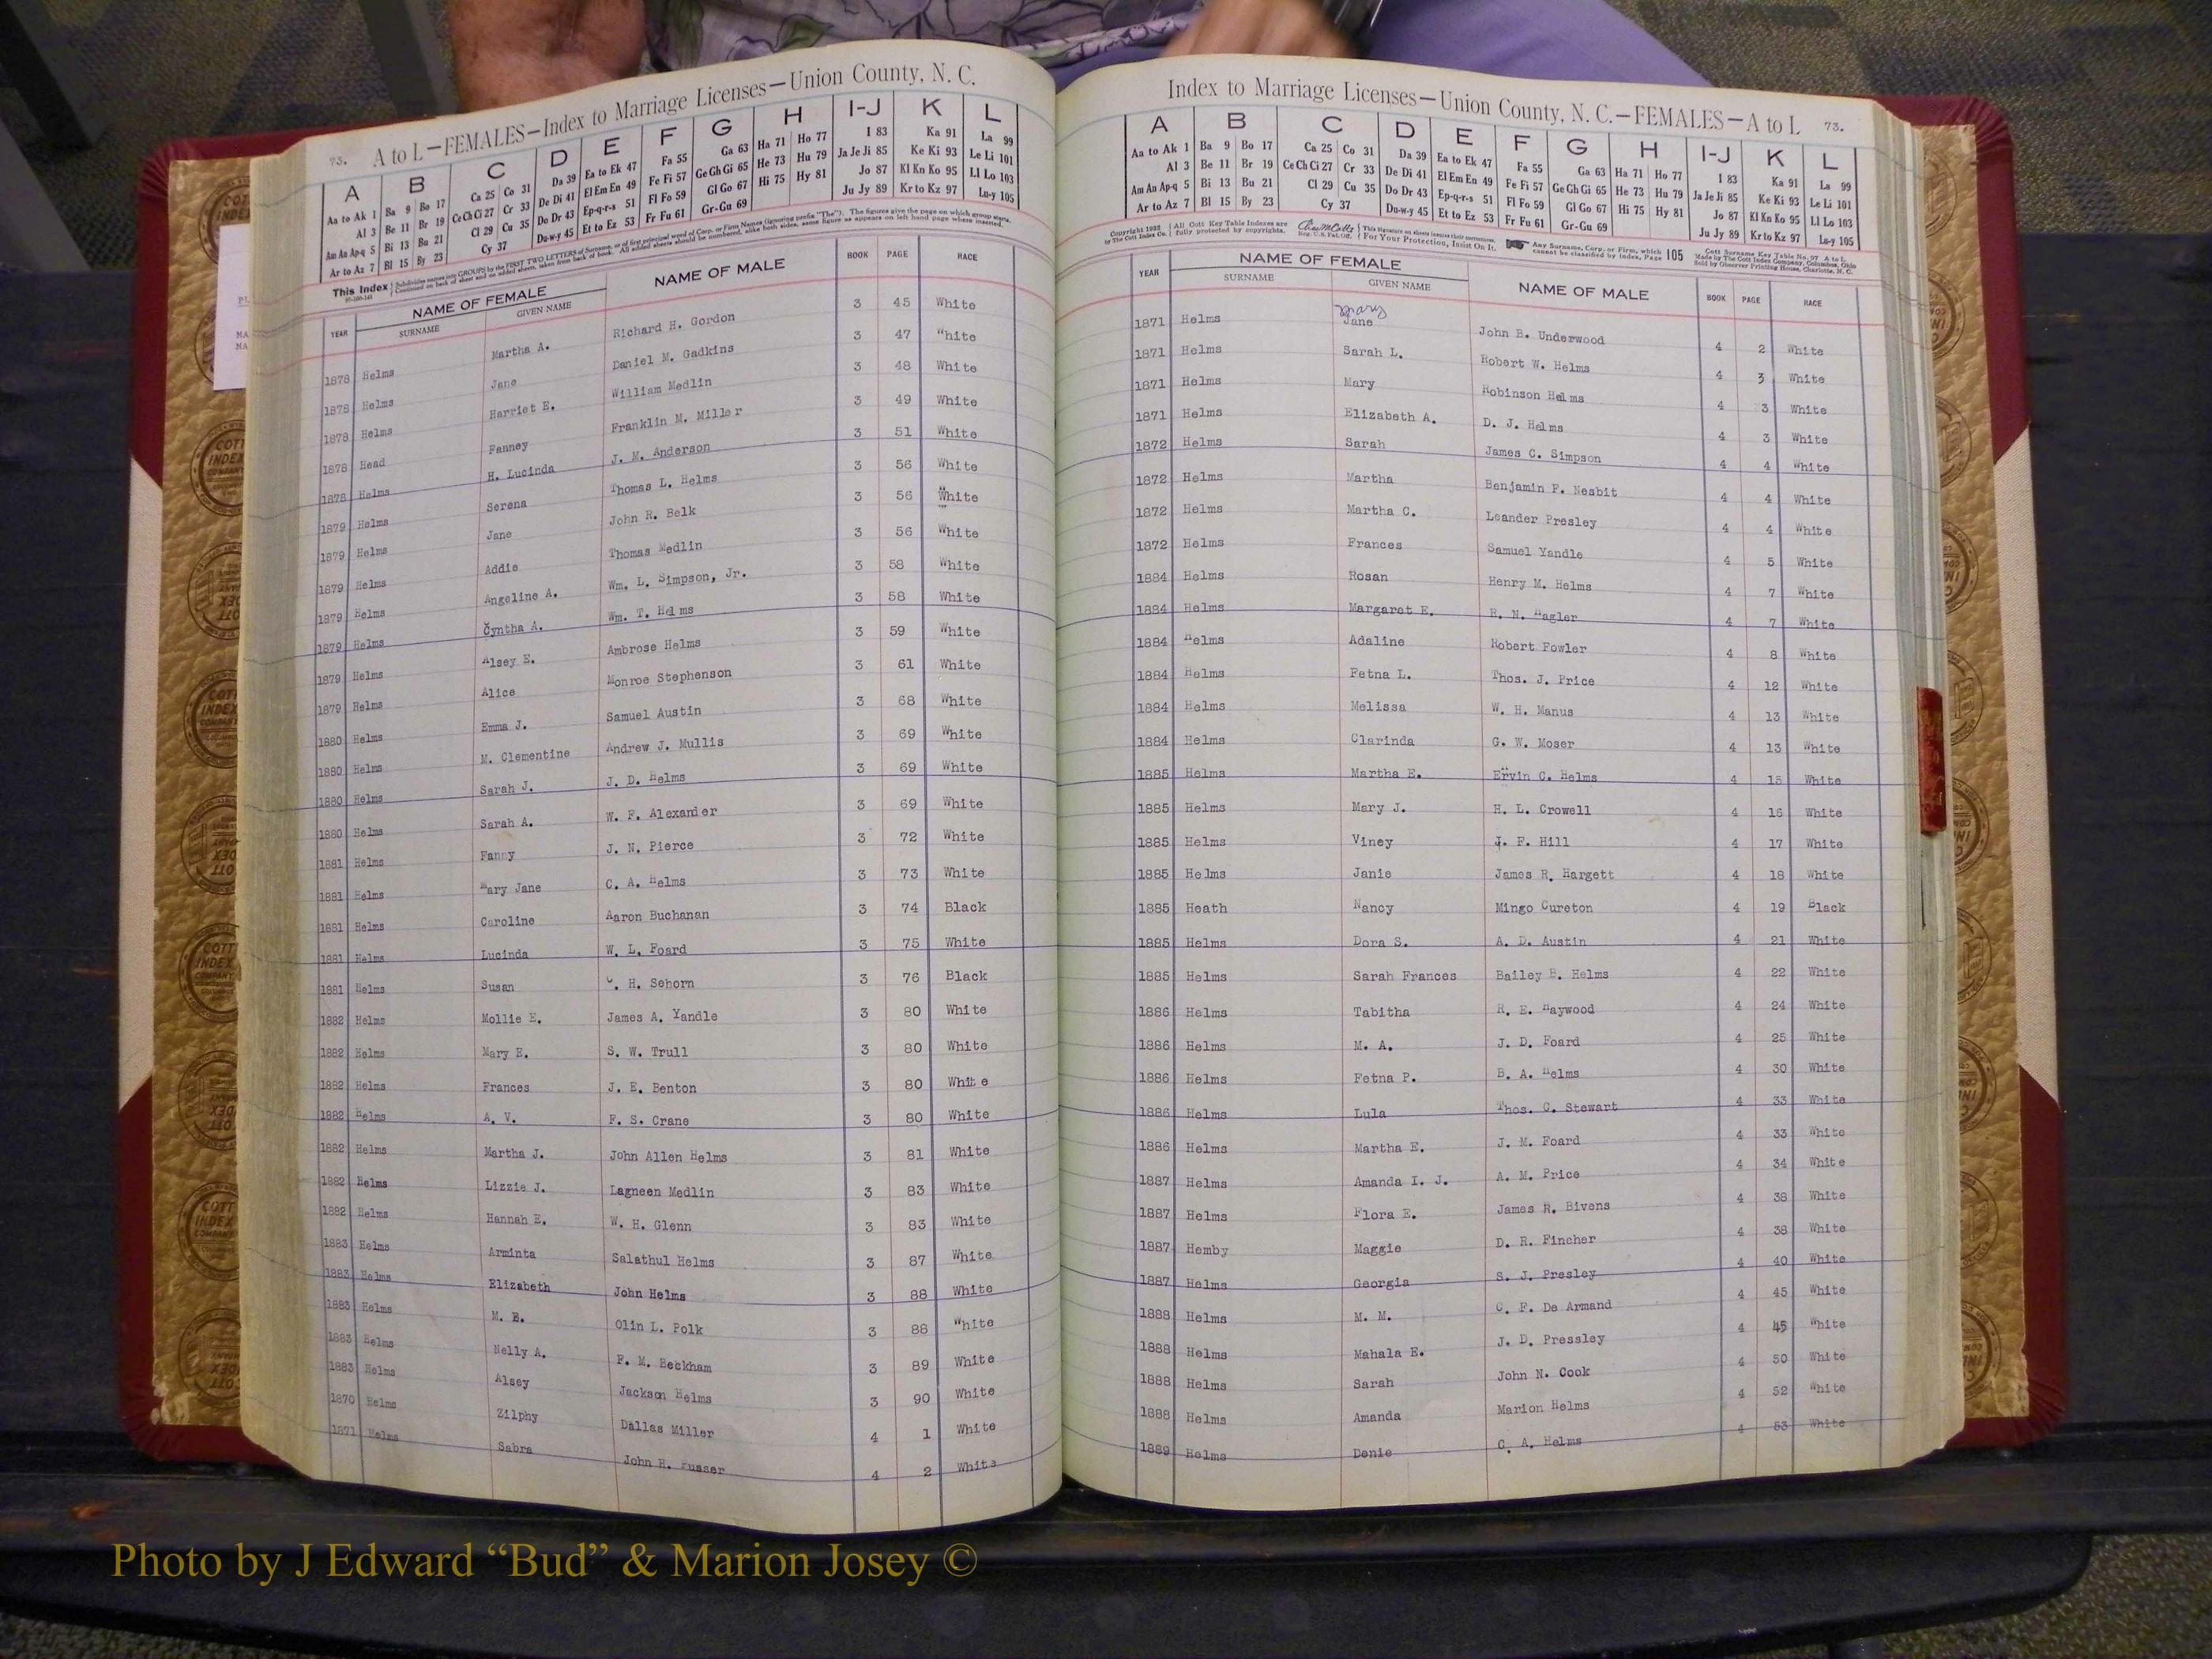 73. A to L—FEMALES—Index to Marriage Licenses—Union County, N. C.
A B C D E F G H I-J K L
Aa to Ak 1 Ba 9 Bo 17 Ca 25 Co 31 Da 39 Ea to Ek 47 Fa 55 Ga 63 Ha 71 Ho 77 I 83 Ka 91 La 99
Al 3 Be 11 Br 19 Ce Ch Ci 27 Cr 33 De Di 41 El Em En 49 Fe Fi 57 Ge Gh Gi 65 He 73 Hu 79 Ja Je Ji 85 Ke Ki 93 Le Li 101
Am An Ap-q 5 Bi 13 Bu 21 Cl 29 Cu 35 Do Dr 43 Ep-q-r-s 51 Fl Fo 59 Gl Go 67 Hi 75 Hy 81 Jo 87 Kl Kn Ko 95 Ll Lo 103
Ar to Az 7 Bl 15 By 23 Cy 37 Du-w-y 45 Et to Ez 53 Fr Fu 61 Gr-Gu 69 Ju Jy 89 Kr to Kz 97 Lu-y 105
This Index
YEAR NAME OF FEMALE NAME OF MALE BOOK PAGE RACE
SURNAME GIVEN NAME
1878 Helms Martha A. Richard H. Gordon 3 45 White
1878 Helms Jane Daniel M. Gadkins 3 47 White
1878 Helms Harriet E. William Medlin 3 48 White
1878 Head Fanney Franklin M. Miller 3 49 White
1878 Helms H. Lucinda J. M. Anderson 3 51 White
1879 Helms Serena Thomas L. Helms 3 56 White
1879 Helms Jane John R. Belk 3 56 White
1879 Helms Addie Thomas Medlin 3 56 White
1879 Helms Angeline A. Wm. L. Simpson, Jr. 3 58 White
1879 Helms Cyntha A. Wm. T. Helms 3 58 White
1879 Helms Alsey E. Ambrose Helms 3 59 White
1879 Helms Alice Monroe Stephenson 3 61 White
1880 Helms Emma J. Samuel Austin 3 68 White
1880 Helms M. Clementine Andrew J. Mullis 3 69 White
1880 Helms Sarah J. J. D. Helms 3 69 White
1880 Helms Sarah A. W. F. Alexander 3 69 White
1881 Helms Fanny J. N. Pierce 3 72 White
1881 Helms Mary Jane C. A. Helms 3 73 White
1881 Helms Caroline Aaron Buchanan 3 74 Black
1881 Helms Lucinda W. L. Foard 3 75 White
1881 Helms Susan C. H. Sehorn 3 76 Black
1882 Helms Mollie E. James A. Yandle 3 80 White
1882 Helms Mary E. S. W. Trull 3 80 White
1882 Helms Frances J. E. Benton 3 80 White
1882 Helms A. V. F. S. Crane 3 80 White
1882 Helms Martha J. John Allen Helms 3 81 White
1882 Helms Lizzie J. Lagneen Medlin 3 83 White
1882 Helms Hannah E. W. H. Glenn 3 83 White
1883 Helms Arminta Salathul Helms 3 87 White
1883 Helms Elizabeth John Helms 3 88 White
1883 Helms M. E. Olin L. Polk 3 88 White
1883 Helms Nelly A. F. M. Beckham 3 89 White
1883 Helms Alsey Jackson Helms 3 90 White
1870 Helms Zilphy Dallas Miller 4 1 White
1871 Helms Sabra John H. Fusser 4 2 White
Index to Marriage Licenses—Union County, N. C.—FEMALES—A to L 73.
A B C D E F G H I-J K L
Aa to Ak 1 Ba 9 Bo 17 Ca 25 Co 31 Da 39 Ea to Ek 47 Fa 55 Ga 63 Ha 71 Ho 77 I 83 Ka 91 La 99
Al 3 Be 11 Br 19 Ce Ch Ci 27 Cr 33 De Di 41 El Em En 49 Fe Fi 57 Ge Gh Gi 65 He 73 Hu 79 Ja Je Ji 85 Ke Ki 93 Le Li 101
Am An Ap-q 5 Bi 13 Bu 21 Cl 29 Cu 35 Do Dr 43 Ep-q-r-s 51 Fl Fo 59 Gl Go 67 Hi 75 Hy 81 Jo 87 Kl Kn Ko 95 Ll Lo 103
Ar to Az 7 Bl 15 By 23 Cy 37 Du-w-y 45 Et to Ez 53 Fr Fu 61 Gr-Gu 69 Ju Jy 89 Kr to Kz 97 Lu-y 105
YEAR NAME OF FEMALE NAME OF MALE BOOK PAGE RACE
SURNAME GIVEN NAME
Mary
1871 Helms Jane John B. Underwood 4 2 White
1871 Helms Sarah L. Robert W. Helms 4 3 White
1871 Helms Mary Robinson Helms 4 3 White
1871 Helms Elizabeth A. D. J. Helms 4 3 White
1872 Helms Sarah James C. Simpson 4 4 White
1872 Helms Martha Benjamin F. Nesbit 4 4 White
1872 Helms Martha C. Leander Presley 4 4 White
1872 Helms Frances Samuel Yandle 4 5 White
1884 Helms Rosan Henry M. Helms 4 7 White
1884 Helms Margaret E. R. N. Hagler 4 7 White
1884 Helms Adaline Robert Fowler 4 8 White
1884 Helms Fetna L. Thos. J. Price 4 12 White
1884 Helms Melissa W. H. Manus 4 13 White
1884 Helms Clarinda G. W. Moser 4 13 White
1885 Helms Martha E. Ervin C. Helms 4 15 White
1885 Helms Mary J. H. L. Crowell 4 16 White
1885 Helms Viney J. F. Hill 4 17 White
1885 Helms Janie James R. Hargett 4 18 White
1885 Heath Nancy Mingo Cureton 4 19 Black
1885 Helms Dora S. A. D. Austin 4 21 White
1885 Helms Sarah Frances Bailey B. Helms 4 22 White
1886 Helms Tabitha R. E. Haywood 4 24 White
1886 Helms M. A. J. D. Foard 4 25 White
1886 Helms Fetna P. B. A. Helms 4 30 White
1886 Helms Lula Thos. C. Stewart 4 33 White
1886 Helms Martha E. J. M. Foard 4 33 White
1887 Helms Amanda I. J. A. M. Price 4 34 White
1887 Helms Flora E. James R. Bivens 4 38 White
1887 Hemby Maggie D. R. Fincher 4 38 White
1887 Helms Georgia S. J. Presley 4 40 White
1888 Helms M. M. C. F. De Armand 4 45 White
1888 Helms Mahala E. J. D. Pressley 4 45 White
1888 Helms Sarah John N. Cook 4 50 White
1888 Helms Amanda Marion Helms 4 52 White
1889 Helms Denie C. A. Helms 4 53 White
Photo by J Edward “Bud” & Marion Josey ©